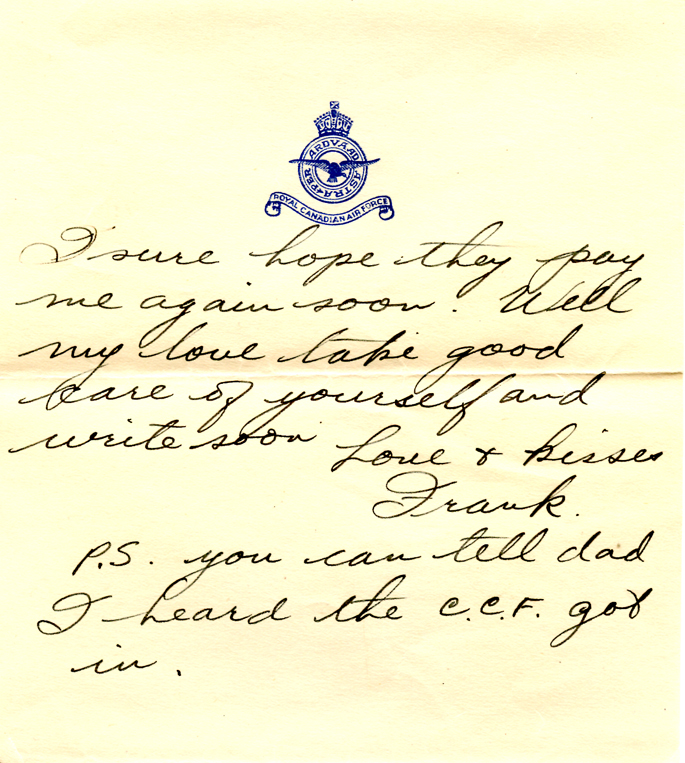 PER ARDVA AD ASTRA
ROYAL CANADIAN AIR FORCE
I sure hope they pay
me again soon. Well
my love take good
care of yourself and
write soon
Love & kisses
Frank.
P.S. you can tell dad
I heard the C.C.F. got
in.